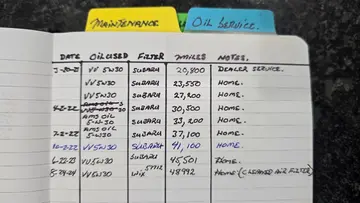 MAINTENANCE
OIL SERVICE.
DATE OIL USED FILTER MILES NOTES.
VV 5W30 SUBARU 20,800 DEALER SERVICE.
VV5W30 SUBARU 23,550 HOME.
VV5W30 SUBARU 27,200 HOME.
4-2-22 SUBARU 30,500 HOME.
AMS OIL 5-W-30 SUBARU 33,200 HOME.
7-2-22 AMS OIL 5W30 SUBARU 37,100 HOME.
VV5W30 SUBARU 41,100 HOME.
6-22-23 VV5W30 SUBARU 45,501 HOME.
8-24-24 VV5W30 WIX 57712 48992 HOME (CLEANED AIR FILTER)